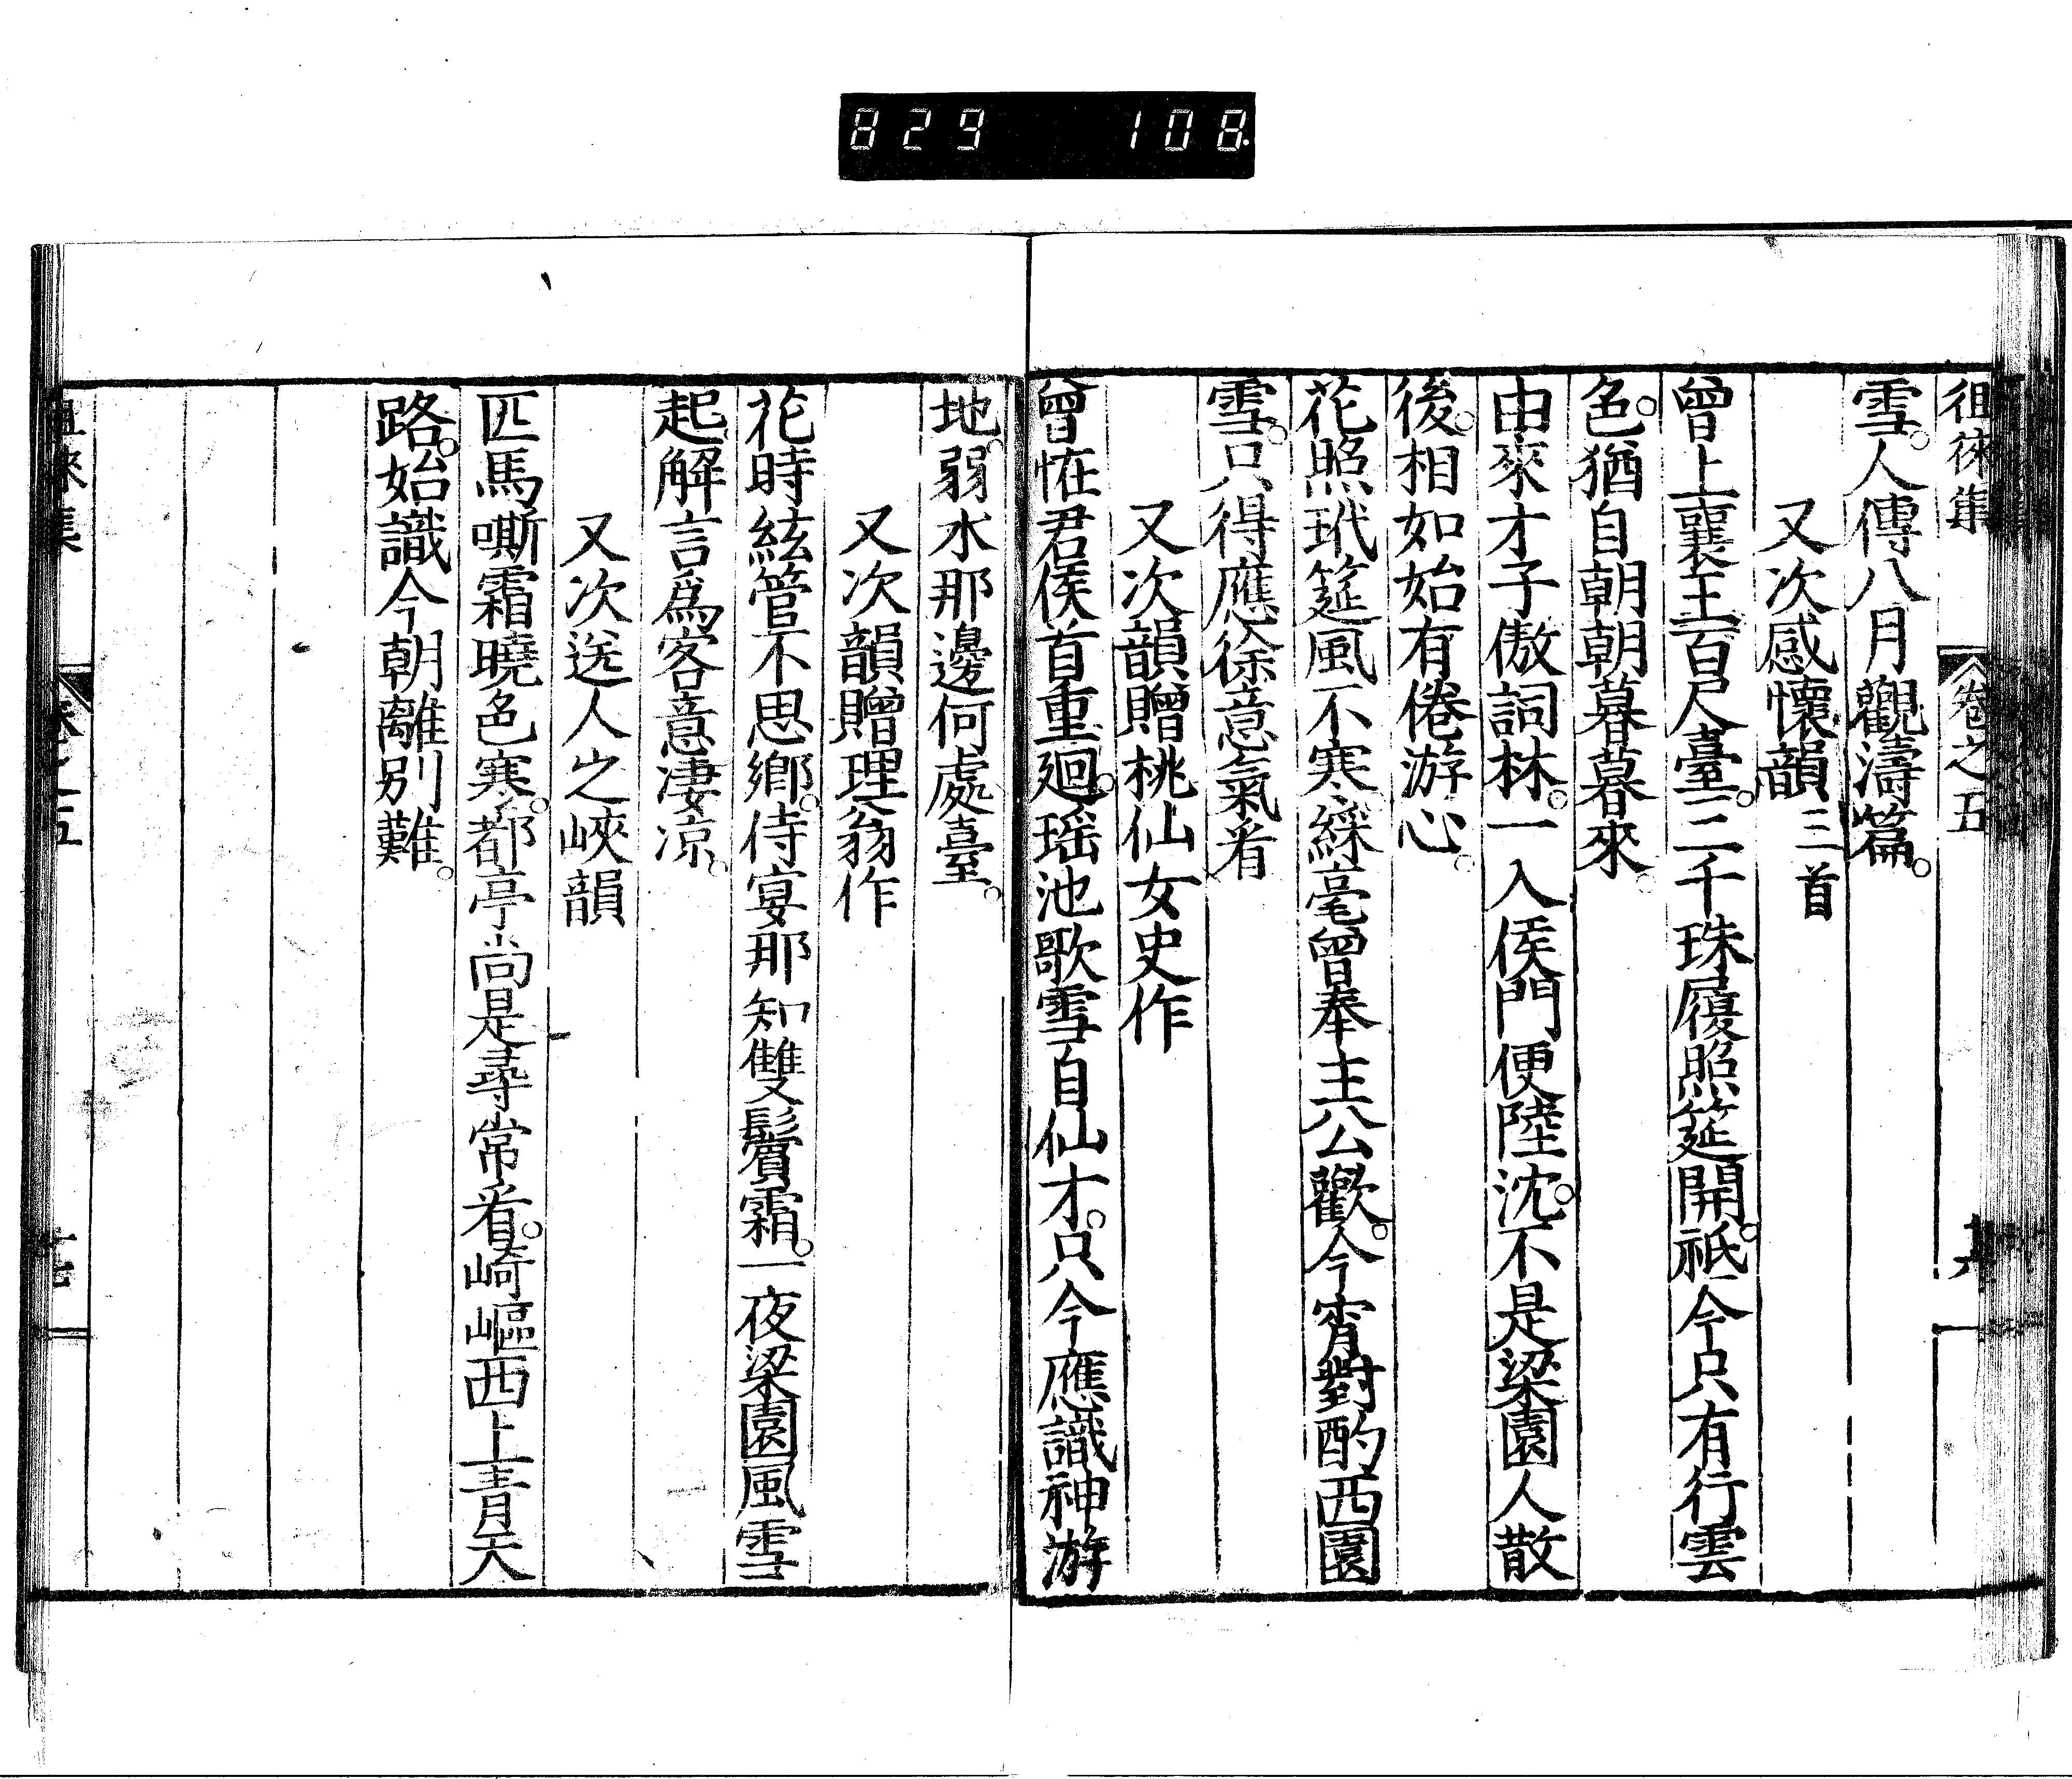 829 108
徂徠集 卷之五
雪。人傳八月觀濤篇。
又次感懷韻三首
曾上襄王百尺臺。三千珠履照筵開。祗今只有行雲
色。猶自朝朝暮暮來。
由來才子傲詞林。一入侯門便陸沈。不是梁園人散
後。相如始有倦游心。
花照玳筵風不寒。綵毫曾奉主公歡。今宵對酌西園
雪。只得應徐意氣看
又次韻贈桃仙女史作
曾恠君侯首重廻。瑶池歌雪自仙才。只今應識神游
地。弱水那邊何處臺。
又次韻贈理翁作
花時絃管不思鄉。侍宴那知雙鬢霜。一夜梁園風雪
起。解言爲客意淒凉。
又次送人之峽韻
匹馬嘶霜曉色寒。都亭尚是尋常看。崎嶇西上青天
路。始識今朝離別難。
卷之五